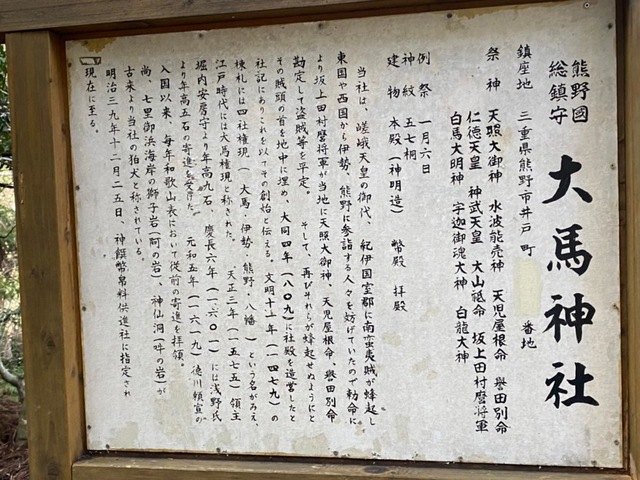 熊野國
総鎮守
大馬神社
鎮座地 三重県熊野市井戸町 番地
祭神 天照大御神 水波能売神 天児屋根命 誉田別命
仁徳天皇 神武天皇 大山祇命 坂上田村麿将軍
白馬大明神 宇迦御魂大神 白龍大神
例祭 一月六日
神紋 五七桐
建物 本殿(神明造) 幣殿 拝殿
当社は、嵯峨天皇の御代、紀伊国室郡に南蛮夷賊が蜂起し
東国や西国から伊勢、熊野に参詣する人々を妨げていたので勅命に
より坂上田村麿将軍が当地に天照大御神、天児屋根命、誉田別命
勘定して盗賊等を平定。そして、再びそれらが蜂起せぬようにと
その賊頭の首を地中に埋め、大同四年(八〇九)に社殿を造営したと
社記にありこれを以てその創始と伝える。文明十一年(一四七九)の
棟札には四社権現(大馬・伊勢・熊野・八幡)という名がみえ、
江戸時代には大馬権現と称された。天正三年(一五七五)領主
堀内安房守より年高九石、慶長六年(一六〇一)には浅野氏
より年高五石の寄進を受けた。元和五年(一六一九)徳川頼宣の
入国以来、毎年和歌山表において従前の寄進を拝領。
尚、七里御浜海岸の獅子岩(阿の岩)、神仙洞(吽の岩)が
古来より当社の狛犬と称されている。
明治三九年十二月二五日、神饌幣帛料供進社に指定され
現在に至る。